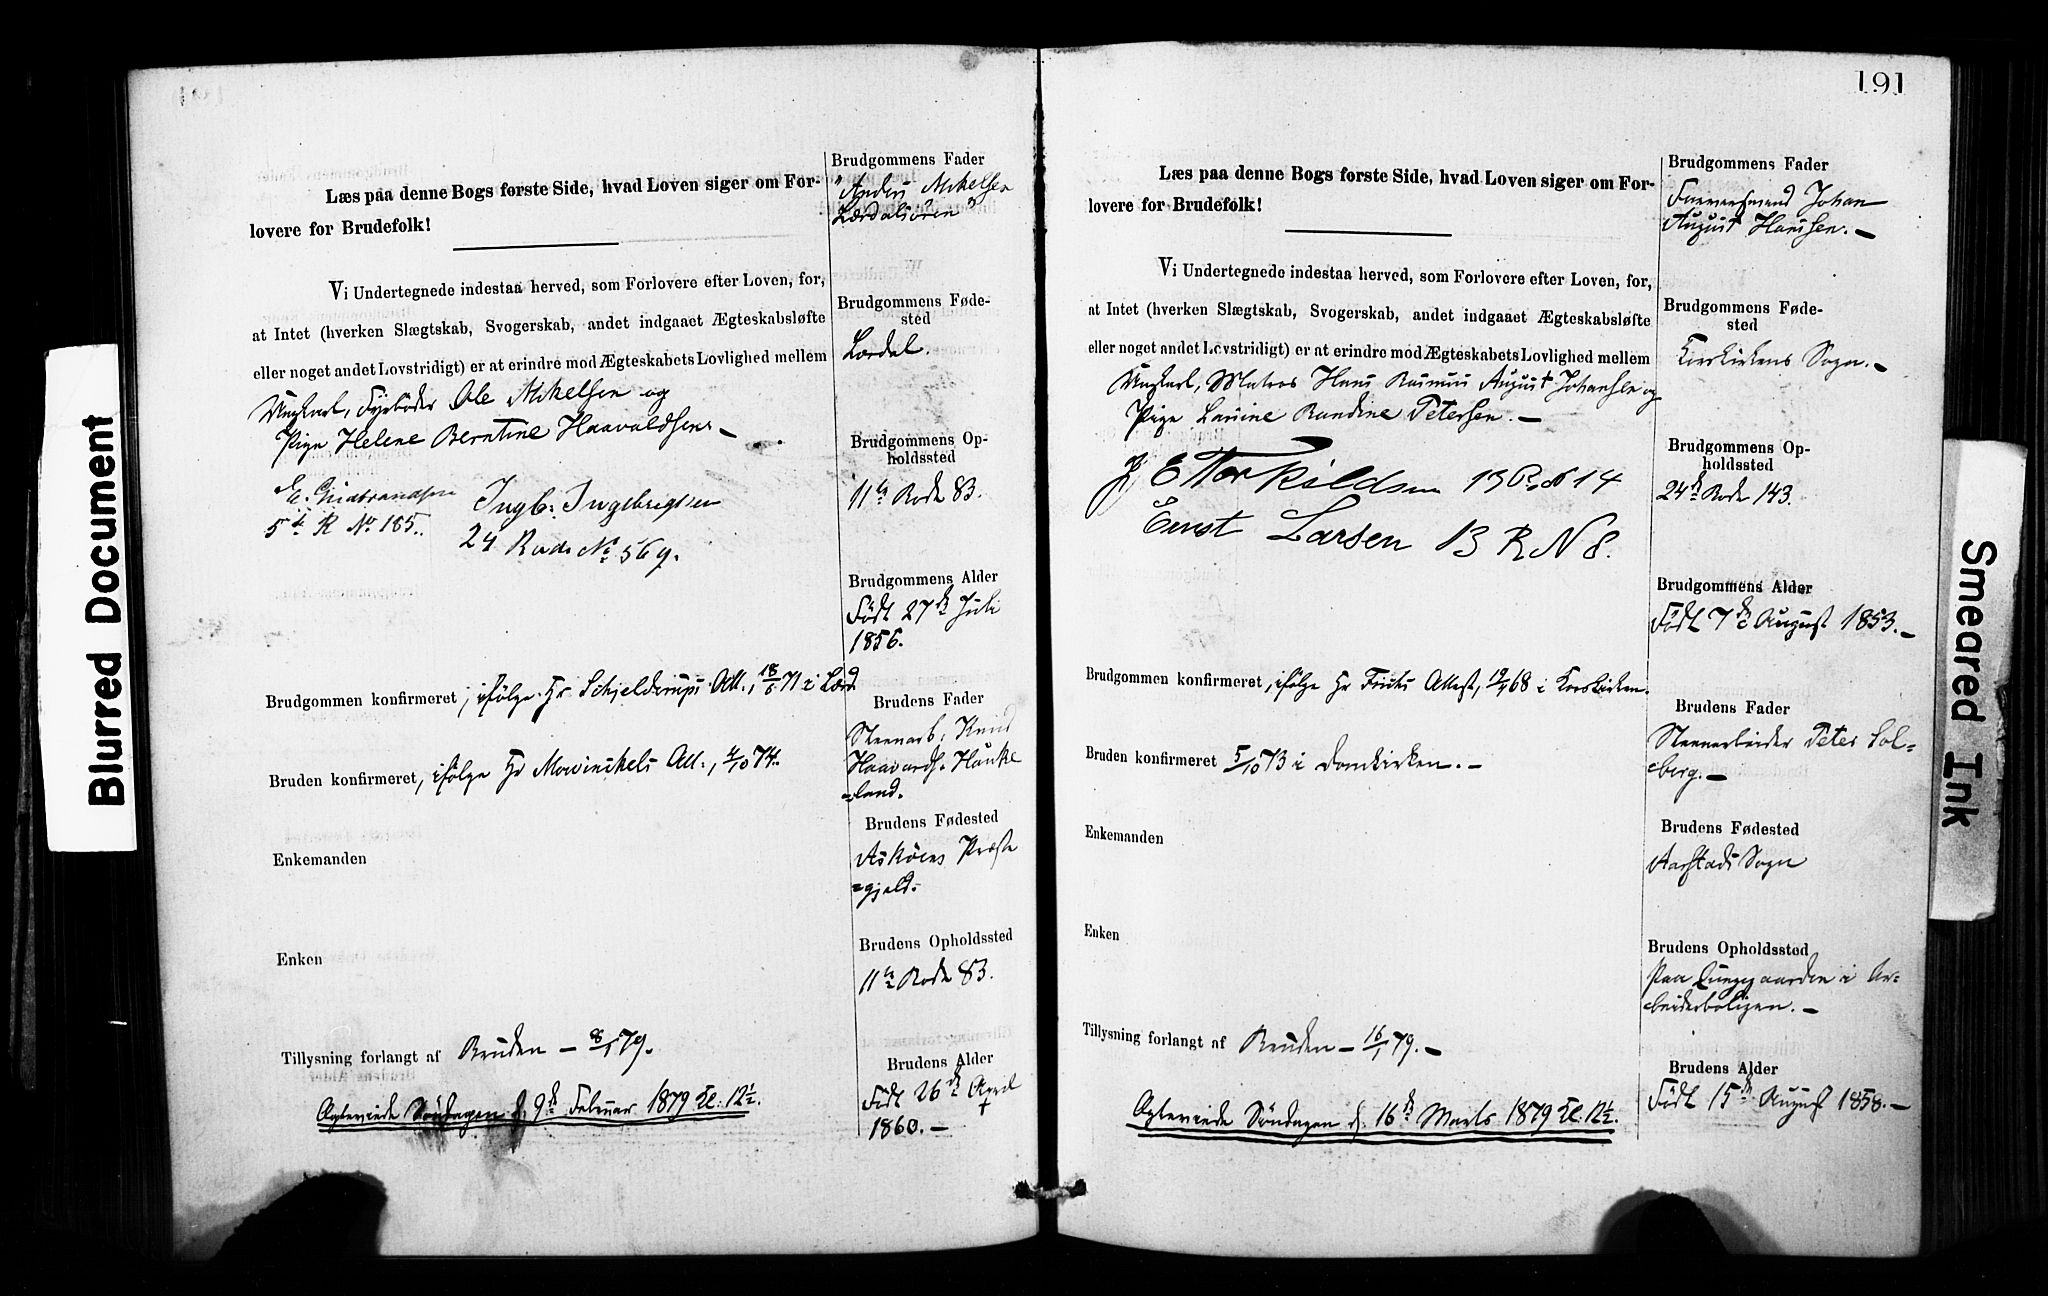 Blurred Document
Læs paa denne Bogs første Side, hvad Loven siger om For-
lovere for Brudefolk!
Vi Undertegnede indestaa herved, som Forlovere efter Loven, for,
at Intet (hverken Slægtskab, Svogerskab, andet indgaaet Ægteskabsløfte
eller noget andet Lovstridigt) er at erindre mod Ægteskabets Lovlighed mellem
Ungkarl, Fyrbøder Ole Mikelsen og
Pige Helene Berntine Haavaldsen. –
E. Gudbrandsen
5te R No 185.
Ingb. Ingebrigtsen
24 Rode No 569.
Brudgommen konfirmeret, ifølge Hr Schjelderups Att., 18/6 71 i Lærd.
Bruden konfirmeret, ifølge Hr Mowinckels Att., 4/10 74.
Enkemanden
Enken
Tillysning forlangt af Bruden – 8/1 79.
Ægteviede Søndagen d. 9de Februar 1879 Kl. 12½.
Brudgommens Fader
"Anders Mikelsen
Lærdalsøren"
Brudgommens Føde-
sted
Lærdal.
Brudgommens Op-
holdssted
11te Rode 83.
Brudgommens Alder
Født 27de Juli
1856.
Brudens Fader
Steenarb. Knud
Haavards. Hauke
=land.
Brudens Fødested
Askøens Præste
=gjeld.
Brudens Opholdssted
11te Rode 83.
Brudens Alder
Født 26de April
1860. –
191
Læs paa denne Bogs første Side, hvad Loven siger om For-
lovere for Brudefolk!
Vi Undertegnede indestaa herved, som Forlovere efter Loven, for,
at Intet (hverken Slægtskab, Svogerskab, andet indgaaet Ægteskabsløfte
eller noget andet Lovstridigt) er at erindre mod Ægteskabets Lovlighed mellem
Ungkarl, Matros Hans Rasmus August Johansen og
Pige Lauine Randine Petersen. –
E Torkildsen 13 R No 14
Ernst Larsen 13 R N 8.
Brudgommen konfirmeret, ifølge Hr Attest, 19/4 68 i Korskirken.
Bruden konfirmeret 5/10 73 i Domkirken. –
Enkemanden
Enken
Tillysning forlangt af Bruden – 16/1 79. –
Ægteviede Søndagen d. 16de Marts 1879 Kl. 12½.
Brudgommens Fader
Johan
August Hansen. –
Brudgommens Føde-
sted
Korskirkens Sogn. –
Brudgommens Op-
holdssted
24de Rode 143.
Brudgommens Alder
Født 7de August 1853. –
Brudens Fader
Steenarbeider Peter Sol=
berg. –
Brudens Fødested
Aarstads Sogn
Brudens Opholdssted
Paa Lungegaarden i Ar=
beiderboligen. –
Brudens Alder
Født 15de August 1858. –
Smeared Ink